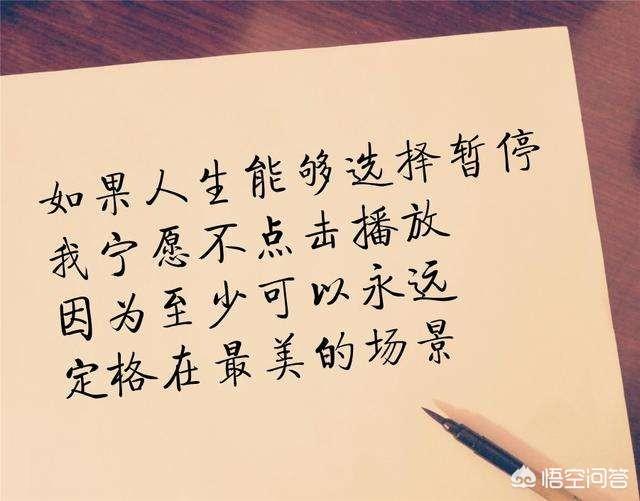 如果人生能够选择暂停
我宁愿不点击播放
因为至少可以永远
定格在最美的场景
悟空问答